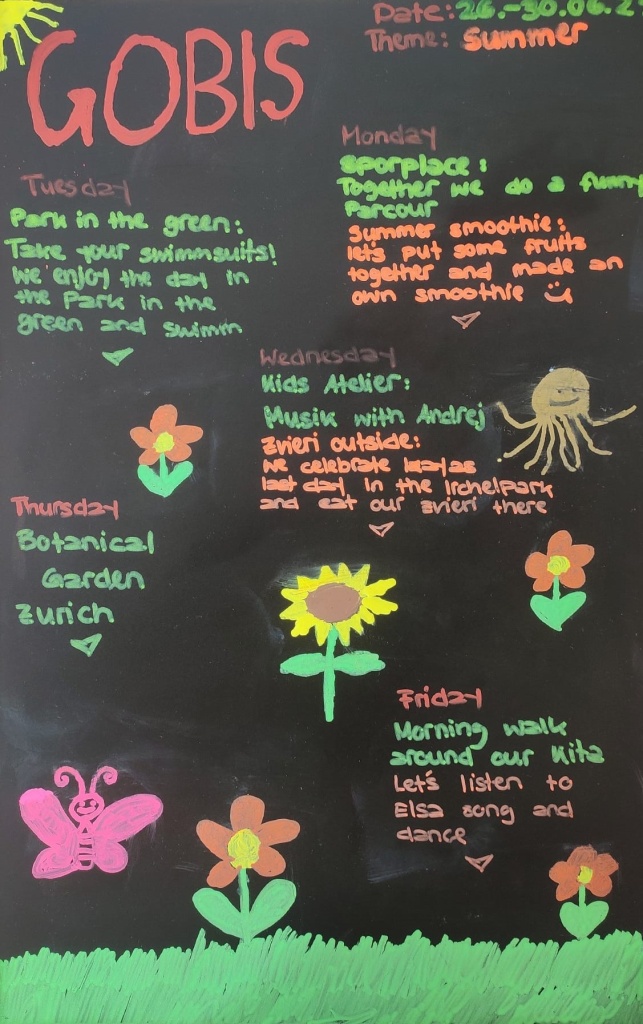 GOBIS
Date: 26.-30.06.2
Theme: Summer
Monday
Sporplace:
Together we do a funny
Parcour
Summer smoothie:
let's put some fruits
together and made an
own smoothie
Tuesday
Park in the green:
Take your swimmsuits!
we enjoy the day in
the Park in the
green and swimm
Wednesday
Kids Atelier:
Musik with Andrej
Zvieri outside:
we celebrate
last day in the Irchelpark
and eat our zvieri there
Thursday
Botanical
Garden
Zurich
Friday
Morning walk
around our Kita
Let's listen to
Elsa song and
dance